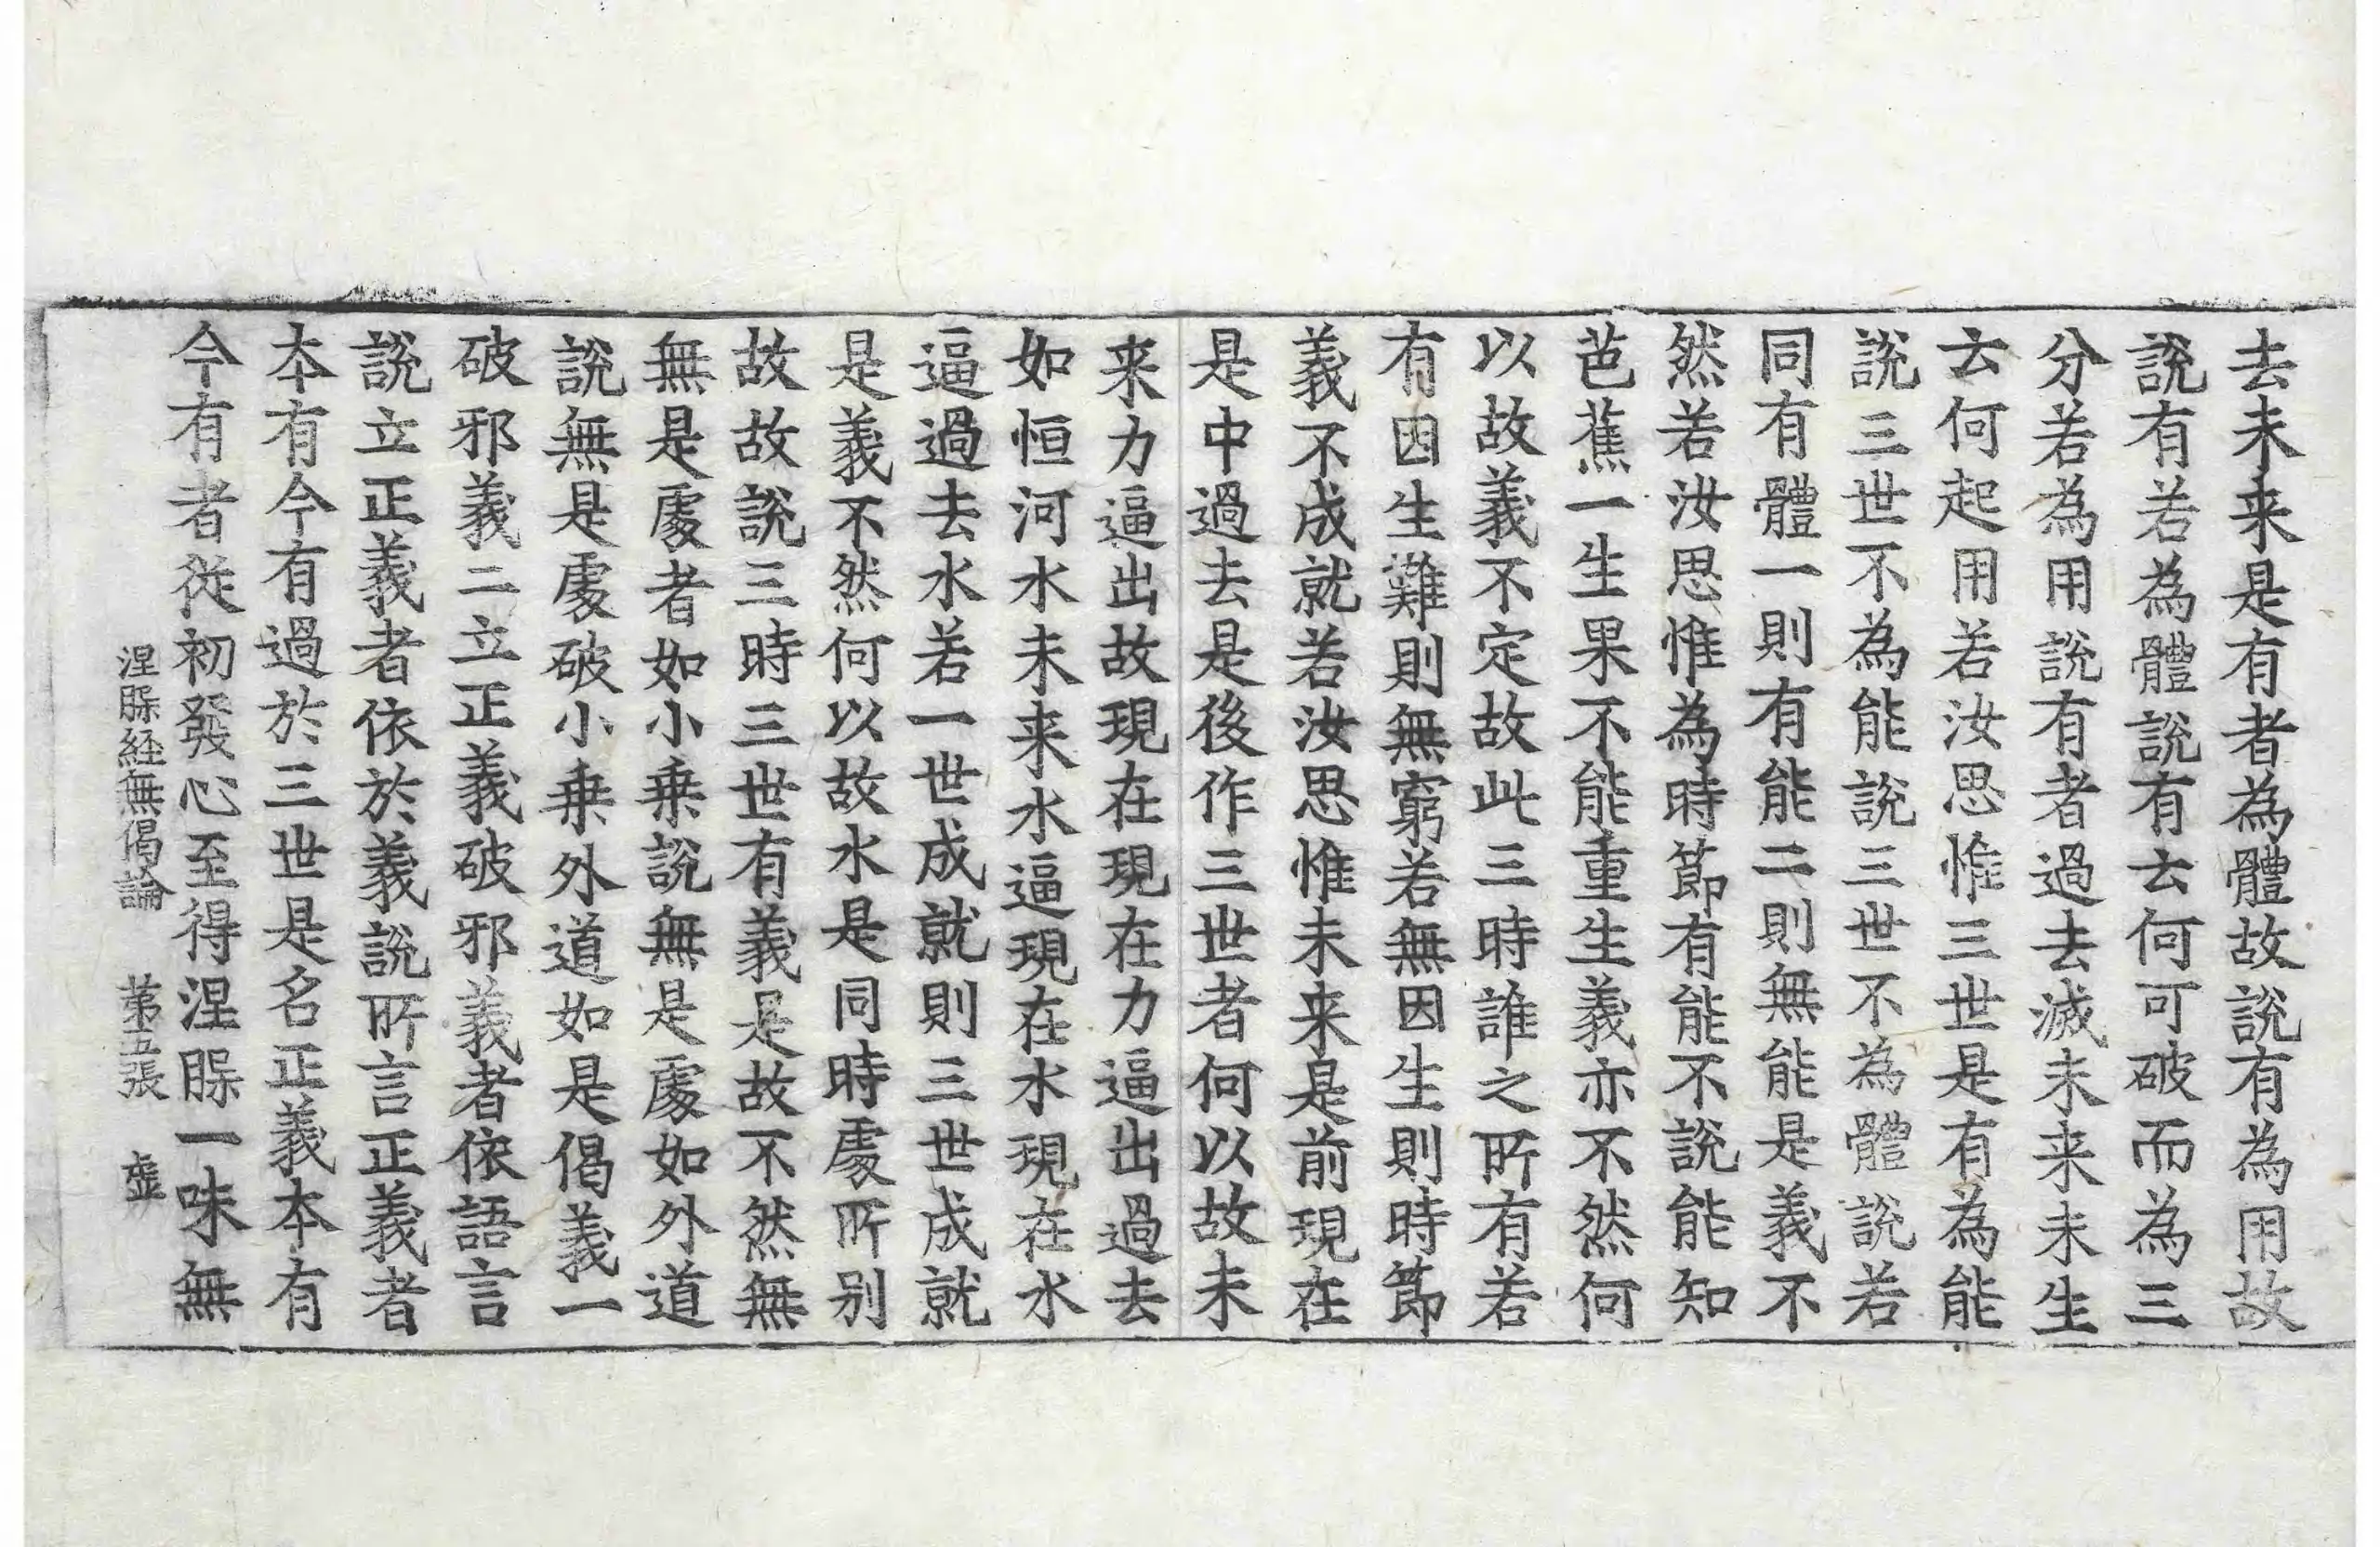 去未来是有者為體故說有為用故
說有若為體說有去何可破而為三
分若為用說有者過去滅未来未生
去何起用若汝思惟三世是有為能
說三世不為能說三世不為體說若
同有體一則有能二則無能是義不
然若汝思惟為時節有能不說能知
芭蕉一生果不能重生義亦不然何
以故義不定故此三時誰之所有若
有因生難則無窮若無因生則時節
義不成就若汝思惟未来是前現在
是中過去是後作三世者何以故未
来力逼出故現在現在力逼出過去
如恒河水未来水逼現在水現在水
逼過去水若一世成就則三世成就
是義不然何以故水是同時處所别
故故說三時三世有義是故不然無
無是處者如小乗說無是處如外道
說無是處破小乗外道如是偈義一
破邪義二立正義破邪義者依語言
說立正義者依於義說所言正義者
本有今有過於三世是名正義本有
今有者從初發心至得涅槃一味無
涅槃経無偈論　第五張　虛